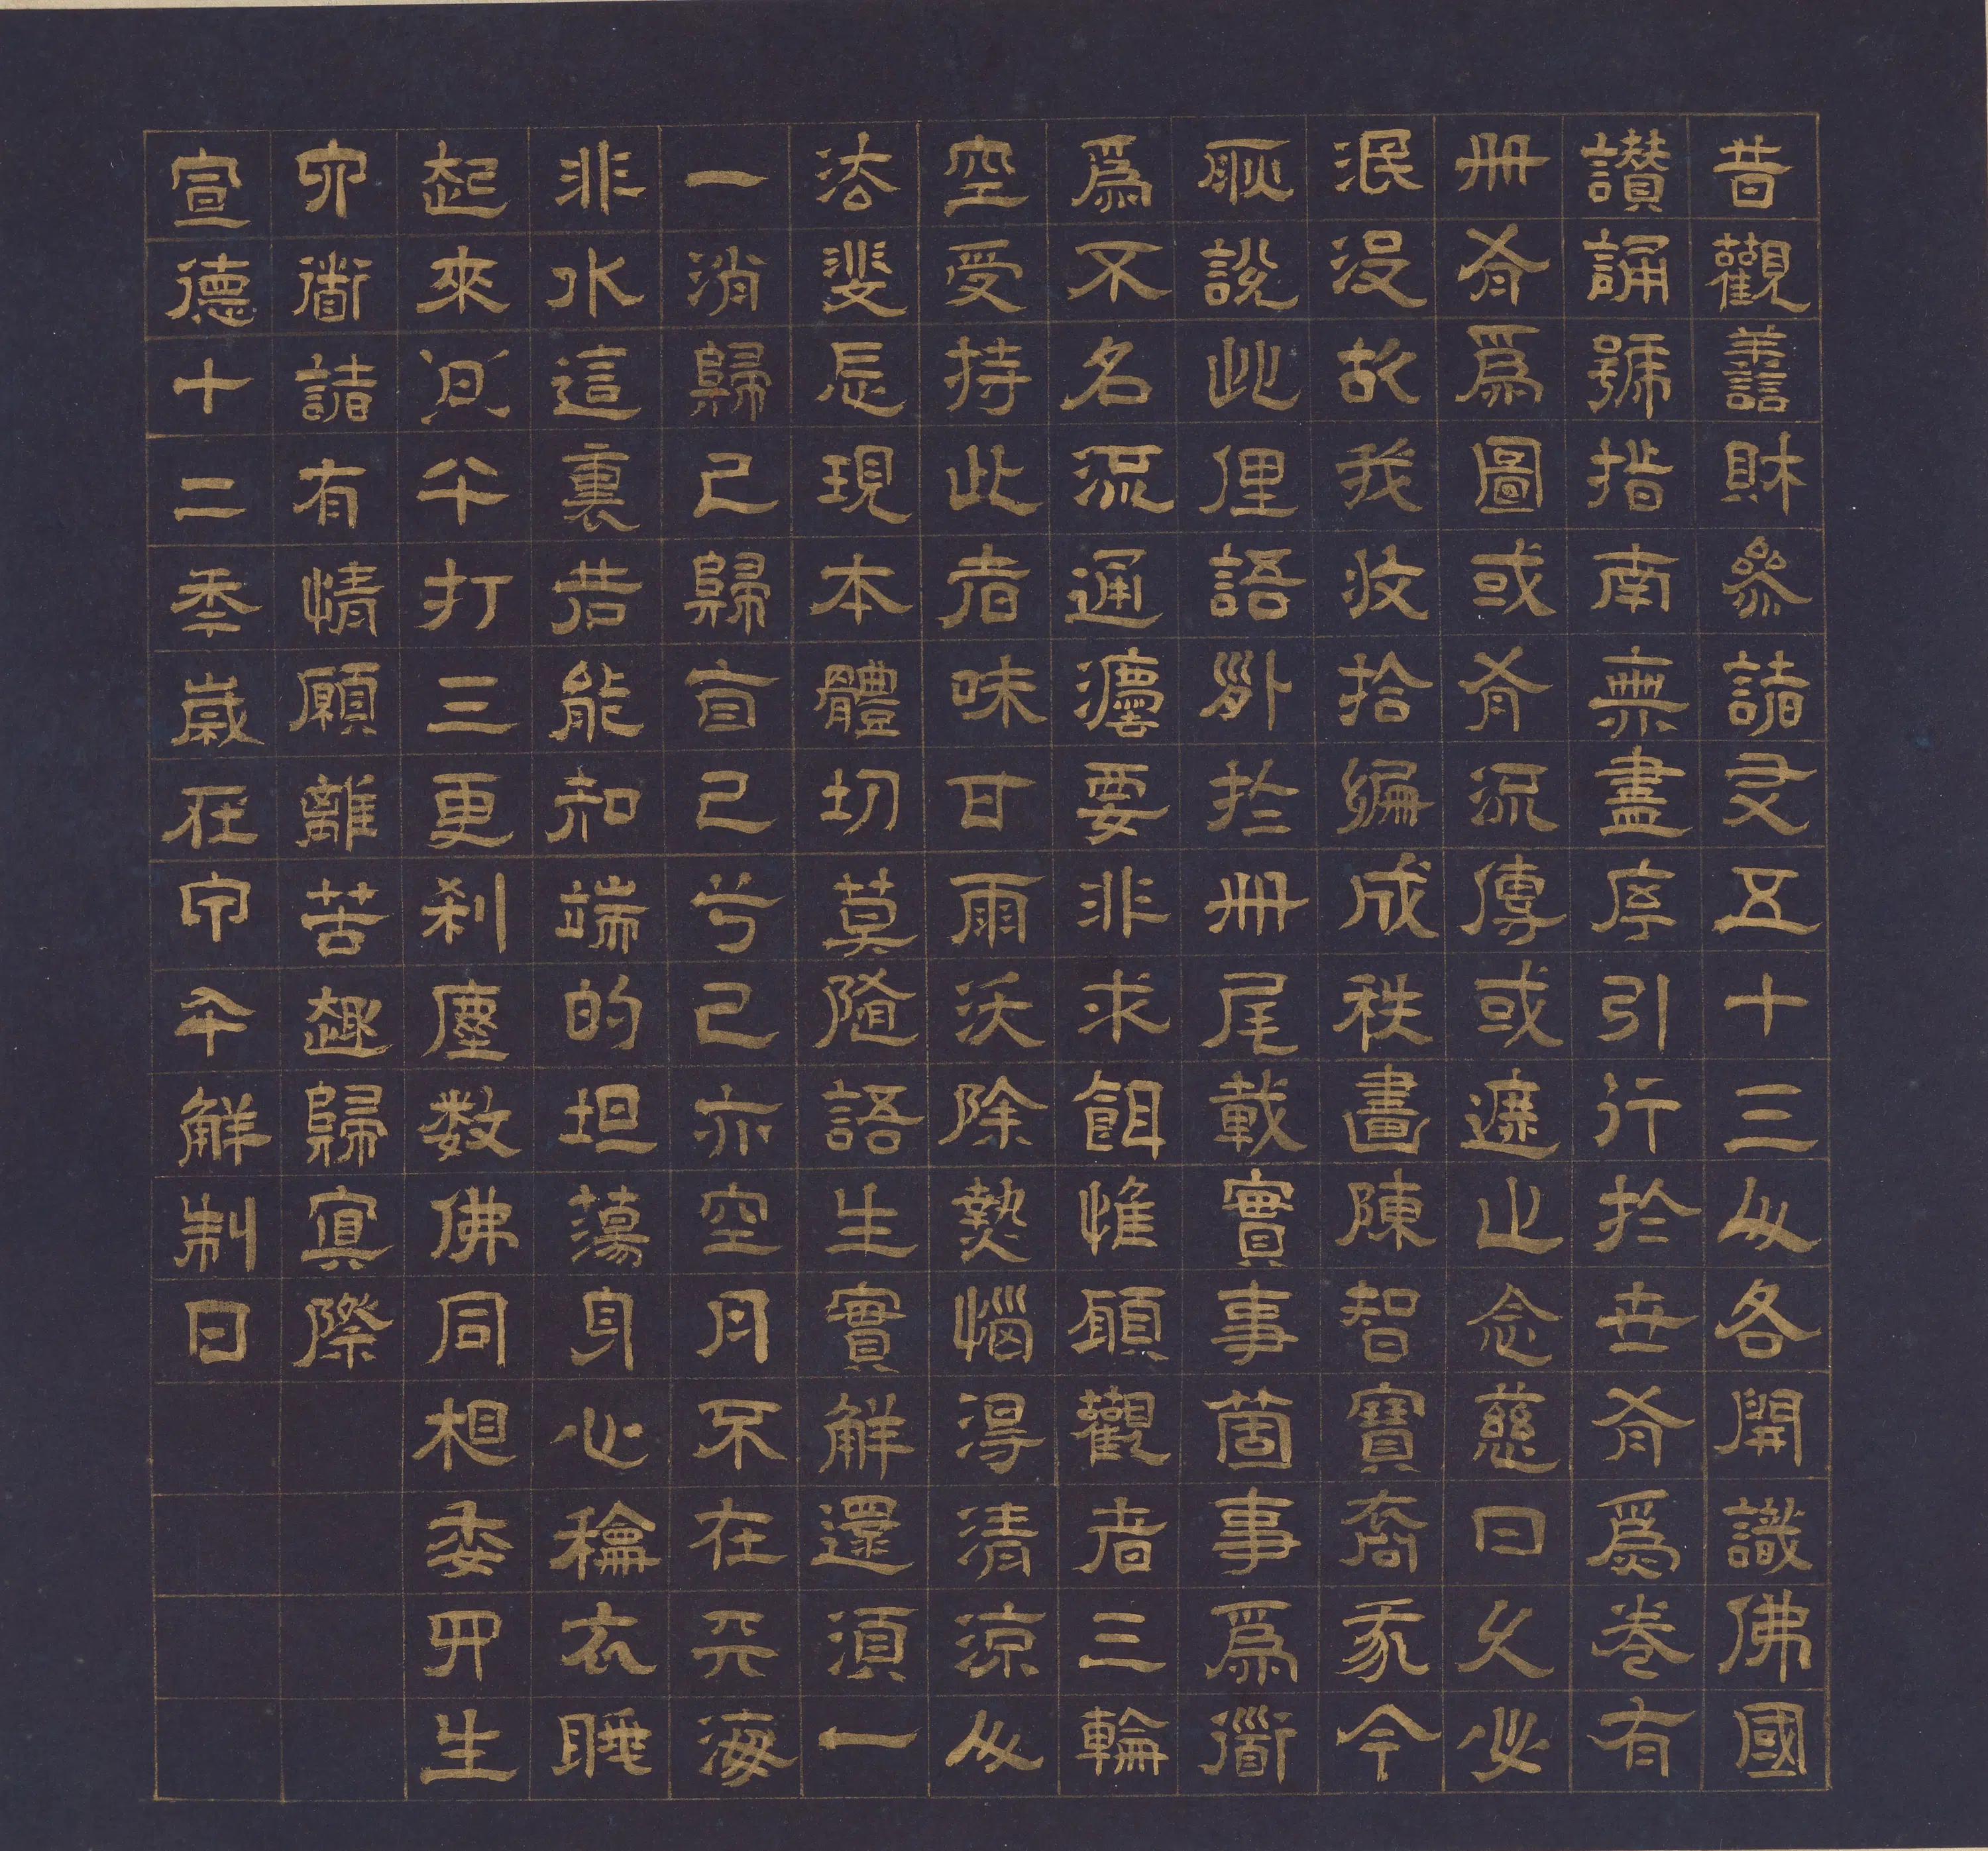 昔觀譱財叅諸友五十三人各開識佛國
讚誦號指南無盡序引行於世有爲卷有
冊有爲圖或有流傳或遞止念慈曰久必
泯没故我收拾編成秩畫陳智寶裔豕今
耿說此俚語外於冊尾載實事箇事爲衜
爲不名流通灋要非求餌惟顧觀者三輪
空受持此者味甘雨沃除熱惱得清凉人
法斐忘現本體切莫隨語生實解還須一
一消歸己歸盲己兮己亦空月不在天海
非水這裏若能知端的坦蕩身心穐衣睡
起來午打三更剎塵数佛同相委四生
六衜諸有情願離苦趣歸冥際
宣德十二年歲在甲午解制日